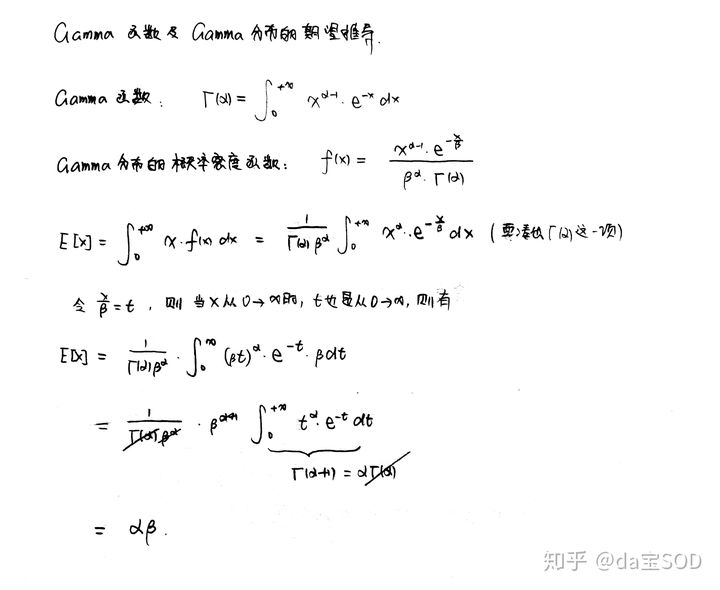 Gamma 函数及 Gamma 分布的期望推导.
Gamma 函数: Γ(α) = ∫₀^{+∞} x^{α-1} · e^{-x} dx
Gamma 分布的概率密度函数: f(x) = \frac{x^{α-1} · e^{-\frac{x}{β}}}{β^α · Γ(α)}
E[x] = ∫₀^{+∞} x · f(x) dx = \frac{1}{Γ(α) β^α} ∫₀^{+∞} x^α · e^{-\frac{x}{β}} dx (要凑出 Γ(α) 这一项)
令 \frac{x}{β} = t, 则 当 x 从 0→∞时, t 也是从 0→∞, 则有
E[x] = \frac{1}{Γ(α) β^α} · ∫₀^{∞} (βt)^α · e^{-t} · β dt
= \frac{1}{Γ(α) β^α} · β^{α+1} ∫₀^{+∞} t^α · e^{-t} dt
Γ(α+1) = αΓ(α)
= αβ.
知乎 @da宝SOD